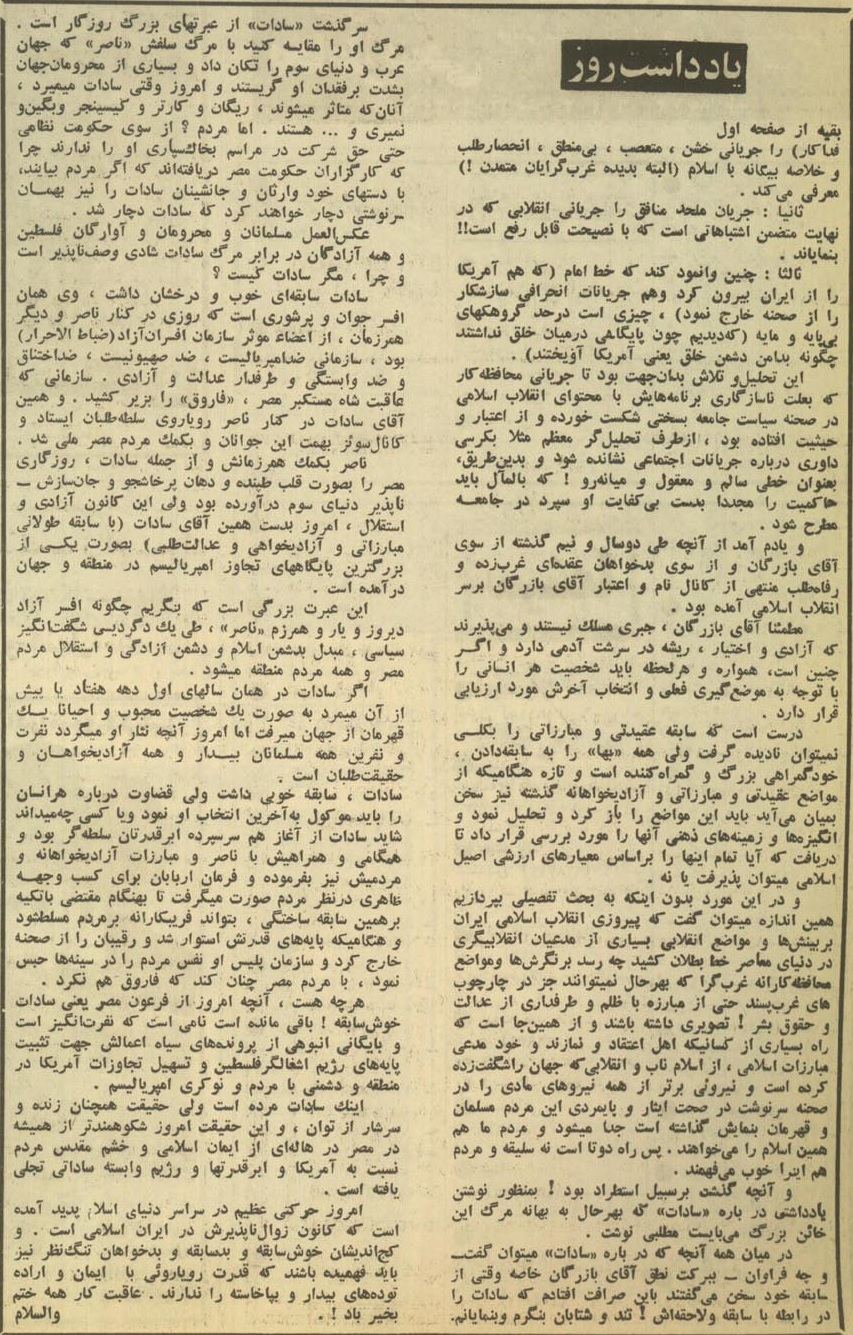 یادداشت روز
بقیه از صفحه اول
فداکار) را جریانی خشن ، متعصب ، بی‌منطق ، انحصارطلب
و خلاصه بیگانه با اسلام (البته بدیده غرب‌گرایان متمدن !)
معرفی می‌کند .
ثانیا : جریان ملحد منافق را جریانی انقلابی که در
نهایت متضمن اشتباهاتی است که با نصیحت قابل رفع است!!
بنمایاند .
ثالثا : چنین وانمود کند که خط امام (که هم آمریکا
را از ایران بیرون کرد وهم جریانات انحرافی سازشکار
را از صحنه خارج نمود) ، چیزی است درحد گروهکهای
بی‌پایه و مایه (که‌دیدیم چون پایگاهی درمیان خلق نداشتند
چگونه بدامن دشمن خلق یعنی آمریکا آویختند) .
این تحلیل‌و تلاش بدان‌جهت بود تا جریانی محافظه‌کار
که بعلت ناسازگاری برنامه‌هایش با محتوای انقلاب اسلامی
در صحنه سیاست جامعه بسختی شکست خورده و از اعتبار و
حیثیت افتاده بود ، ازطرف تحلیل‌گر معظم مثلا بکرسی
داوری درباره جریانات اجتماعی نشانده شود و بدین‌طریق،
بعنوان خطی سالم و معقول و میانه‌رو ! که بالمآل باید
حاکمیت را مجددا بدست بی‌کفایت او سپرد در جامعه
مطرح شود .
و یادم آمد از آنچه طی دوسال و نیم گذشته از سوی
آقای بازرگان و از سوی بدخواهان عقده‌ای غرب‌زده و
رفاه‌طلب منتهی از کانال نام و اعتبار آقای بازرگان برسر
انقلاب اسلامی آمده بود .
مطمئنا آقای بازرگان ، جبری مسلک نیستند و می‌پذیرند
که آزادی و اختیار ، ریشه در سرشت آدمی دارد و اگر
چنین است، همواره و هرلحظه باید شخصیت هر انسانی را
با توجه به موضع‌گیری فعلی و انتخاب آخرش مورد ارزیابی
قرار دارد .
درست است که سابقه عقیدتی و مبارزاتی را بکلی
نمیتوان نادیده گرفت ولی همه «بها» را به سابقه‌دادن ،
خودگمراهی بزرگ و گمراه‌کننده است و تازه هنگامیکه از
مواضع عقیدتی و مبارزاتی و آزادیخواهانه گذشته نیز سخن
بمیان می‌آید باید این مواضع را باز کرد و تحلیل نمود و
انگیزه‌ها و زمینه‌های ذهنی آنها را مورد بررسی قرار داد تا
دریافت که آیا تمام اینها را براساس معیارهای ارزشی اصیل
اسلامی میتوان پذیرفت یا نه .
و در این مورد بدون اینکه به بحث تفصیلی بپردازیم
همین اندازه میتوان گفت که پیروزی انقلاب اسلامی ایران
بربینش‌ها و مواضع انقلابی بسیاری از مدعیان انقلابیگری
در دنیای معاصر خط بطلان کشید چه رسد برنگرش‌ها ومواضع
محافظه‌کارانه غرب‌گرا که بهرحال نمیتوانند جز در چارچوب
های غرب‌پسند حتی از مبارزه با ظلم و طرفداری از عدالت
و حقوق بشر ! تصویری داشته باشند و از همین‌جا است که
راه بسیاری از کسانیکه اهل اعتقاد و نمازند و خود مدعی
مبارزات اسلامی ، از اسلام ناب و انقلابی‌که جهان راشگفت‌زده
کرده است و نیروئی برتر از همه نیروهای مادی را در
صحنه سرنوشت در صحت ایثار و پایمردی این مردم مسلمان
و قهرمان بنمایش گذاشته است جدا میشود و مردم ما هم
همین اسلام را می‌خواهند . پس راه دوتا است نه سلیقه و مردم
هم اینرا خوب می‌فهمند .
و آنچه گذشت برسبیل استطراد بود ! بمنظور نوشتن
یادداشتی در باره «سادات» که بهرحال به بهانه مرگ این
خائن بزرگ می‌بایست مطلبی نوشت .
در میان همه آنچه که در باره «سادات» میتوان گفت ـ
و چه فراوان ـ ببرکت نطق آقای بازرگان خاصه وقتی از
سابقه خود سخن می‌گفتند باین صرافت افتادم که سادات را
در رابطه با سابقه ولاحقه‌اش ! تند و شتابان بنگرم وبنمایانم.
سرگذشت «سادات» از عبرتهای بزرگ روزگار است .
مرگ او را مقایسه کنید با مرگ سلفش «ناصر» که جهان
عرب و دنیای سوم را تکان داد و بسیاری از محرومان‌جهان
بشدت برفقدان او گریستند و امروز وقتی سادات میمیرد ،
آنان‌که متاثر میشوند ، ریگان و کارتر و کیسینجر وبگین‌و
نمیری و ... هستند . اما مردم ؟ از سوی حکومت نظامی
حتی حق شرکت در مراسم بخاک‌سپاری او را ندارند چرا
که کارگزاران حکومت مصر دریافته‌اند که اگر مردم بیایند،
با دستهای خود وارثان و جانشینان سادات را نیز بهمان
سرنوشتی دچار خواهند کرد که سادات دچار شد .
عکس‌العمل مسلمانان و محرومان و آوارگان فلسطین
و همه آزادگان در برابر مرگ سادات شادی وصف‌ناپذیر است
و چرا ، مگر سادات کیست ؟
سادات سابقه‌ای خوب و درخشان داشت ، وی همان
افسر جوان و پرشوری است که روزی در کنار ناصر و دیگر
همرزمان ، از اعضاء موثر سازمان افسران‌آزاد (ضباط الاحرار)
بود ، سازمانی ضدامپریالیست ، ضد صهیونیست ، ضداختناق
و ضد وابستگی و طرفدار عدالت و آزادی . سازمانی که
عاقبت شاه مستکبر مصر ، «فاروق» را بزیر کشید . و همین
آقای سادات در کنار ناصر رویاروی سلطه‌طلبان ایستاد و
کانال‌سوئز بهمت این جوانان و بکمک مردم مصر ملی شد .
ناصر بکمک همرزمانش و از جمله سادات ، روزگاری
مصر را بصورت قلب طپنده و دهان پرخاشجو و جان‌سازش ـ
ناپذیر دنیای سوم درآورده بود ولی این کانون آزادی و
استقلال ، امروز بدست همین آقای سادات (با سابقه طولانی
مبارزاتی و آزادیخواهی و عدالت‌طلبی) بصورت یکی از
بزرگترین پایگاههای تجاوز امپریالیسم در منطقه و جهان
درآمده است .
این عبرت بزرگی است که بنگریم چگونه افسر آزاد
دیروز و یار و همرزم «ناصر» ، طی یک دگردیسی شگفت‌انگیز
سیاسی ، مبدل بدشمن اسلام و دشمن آزادگی و استقلال مردم
مصر و همه مردم منطقه میشود .
اگر سادات در همان سالهای اول دهه هفتاد یا پیش
از آن میمرد به صورت یک شخصیت محبوب و احیانا یک
قهرمان از جهان میرفت اما امروز آنچه نثار او میگردد نفرت
و نفرین همه مسلمانان بیدار و همه آزادیخواهان و
حقیقت‌طلبان است .
سادات ، سابقه خوبی داشت ولی قضاوت درباره هرانسان
را باید موکول به‌آخرین انتخاب او نمود ویا کسی چه‌میداند
شاید سادات از آغاز هم سرسپرده ابرقدرتان سلطه‌گر بود و
همگامی و همراهیش با ناصر و مبارزات آزادیخواهانه و
مردمیش نیز بفرموده و فرمان اربابان برای کسب وجهه
ظاهری درنظر مردم صورت میگرفت تا بهنگام مقتضی باتکیه
برهمین سابقه ساختگی ، بتواند فریبکارانه برمردم مسلط‌شود
و هنگامیکه پایه‌های قدرتش استوار شد و رقیبان را از صحنه
خارج کرد و سازمان پلیس او نفس مردم را در سینه‌ها حبس
نمود ، با مردم مصر چنان کند که فاروق هم نکرد .
هرچه هست ، آنچه امروز از فرعون مصر یعنی سادات
خوش‌سابقه ! باقی مانده است نامی است که نفرت‌انگیز است
و بایگانی انبوهی از پرونده‌های سیاه اعمالش جهت تثبیت
پایه‌های رژیم اشغالگرفلسطین و تسهیل تجاوزات آمریکا در
منطقه و دشمنی با مردم و نوکری امپریالیسم .
اینک سادات مرده است ولی حقیقت همچنان زنده و
سرشار از توان ، و این حقیقت امروز شکوهمندتر از همیشه
در مصر در هاله‌ای از ایمان اسلامی و خشم مقدس مردم
نسبت به آمریکا و ابرقدرتها و رژیم وابسته ساداتی تجلی
یافته است .
امروز حرکتی عظیم در سراسر دنیای اسلام پدید آمده
است که کانون زوال‌ناپذیرش در ایران اسلامی است . و
کج‌اندیشان خوش‌سابقه و بدسابقه و بدخواهان تنگ‌نظر نیز
باید فهمیده باشند که قدرت رویاروئی با ایمان و اراده
توده‌های بیدار و بپاخاسته را ندارند . عاقبت کار همه ختم
بخیر باد ! . والسلام